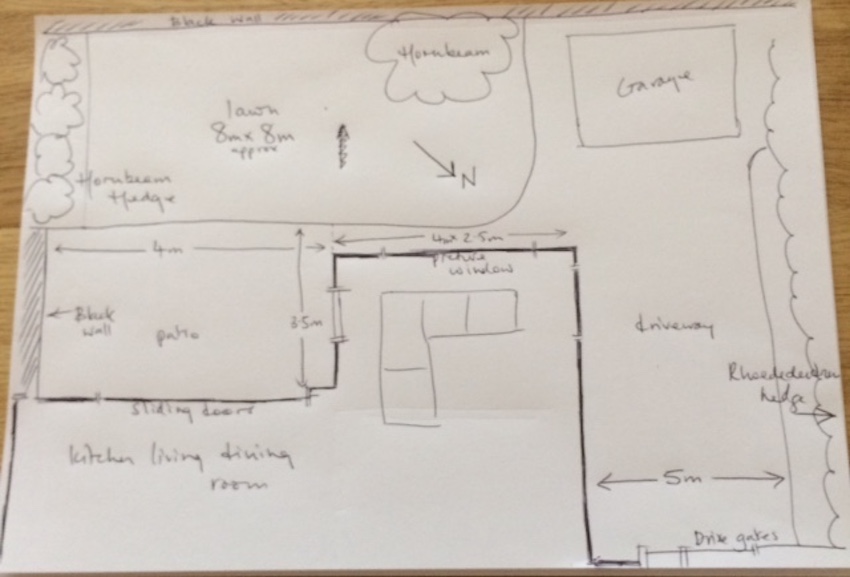 Block wall
Hornbeam
Garage
lawn
8m x 8m
approx
N
Hornbeam
Hedge
4m
4m x 2.5m
picture
window
3.5m
Block
wall
patio
driveway
hedge
sliding doors
kitchen living dining
room
5m
Drive gates